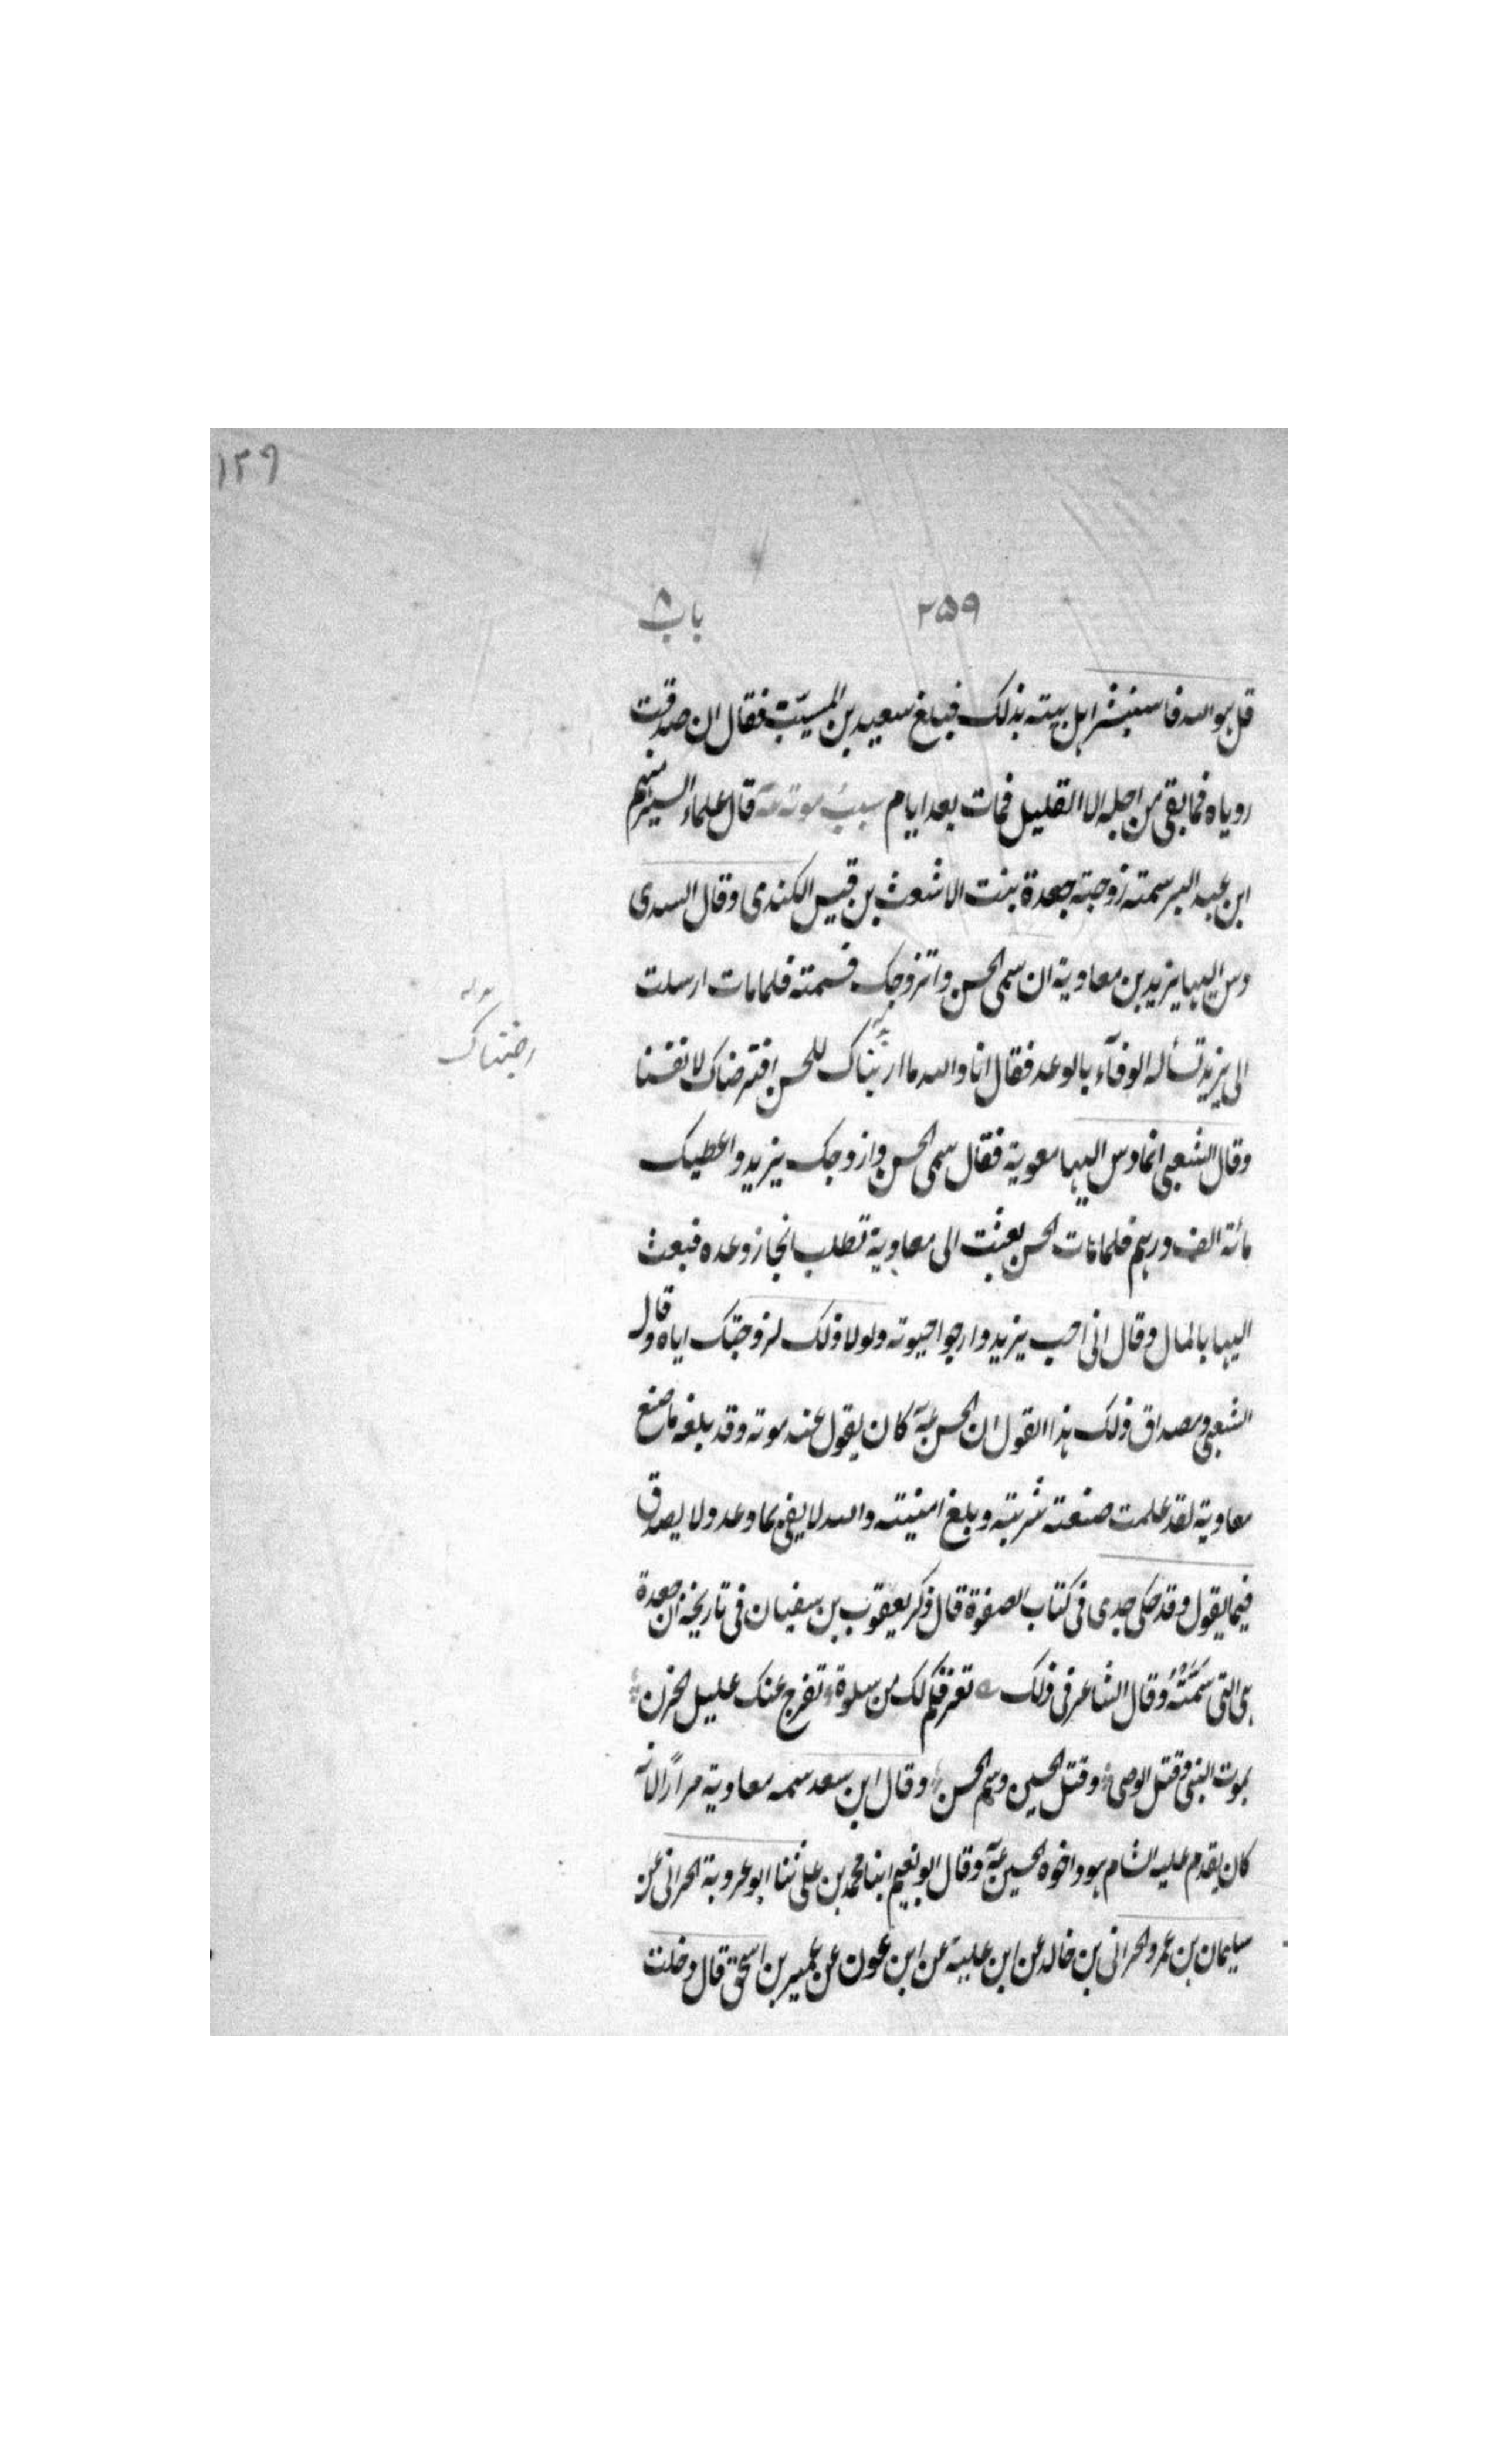 ١٢٩
٢٥٩ باب ٨
قل هو الله فاستبشر اهل بيته بذلك فبلغ سعيد بن المسيّب فقال ان صدقت
روياه فما بقى من اجله الا القليل فمات بعد ايام سبب موته قال علماء السير منهم
ابن عبد البر سمته زوجته جعدة بنت الاشعث بن قيس الكندى وقال السدى
دس اليها يزيد بن معاوية ان سمى الحسن واتزوجك فسمته فلما مات ارسلت
الى يزيد تسأله الوفآء بالوعد فقال انا والله ما ارضيناك للحسن افترضاك لانفسنا
رضيناك
وقال الشعبى انما دس اليها معوية فقال سمى الحسن وازوجك يزيد واعطيك
مائة الف درهم فلما مات الحسن بعثت الى معاوية تطلب انجاز وعده فبعث
اليها بالمال وقال انى احب يزيد وارجوا حيوته ولولا ذلك لزوجتك اياه وقال
الشعبى ومصداق ذلك هذا القول ان الحسن كان يقول عند موته وقد بلغه ما صنع
معاوية لقد علمت صنعته شربته وبلغ امنيته والله لا يفى بما وعد ولا يصدق
فيما يقول وقد حكى جدى فى كتاب الصفوة قال ذكر يعقوب بن سفيان فى تاريخه ان جعدة
هى التى سَمَّتْهُ وقال الشاعر فى ذلك تعز فكم لك من سلوة تفرج عنك عليل الحزن
بموت النبى وقتل الوصى وقتل الحسين وسم الحسن وقال ابن سعد سمه معاوية مراراً لانه
كان يقدم عليه الشام هو واخوه الحسين وقال ابو نعيم ابنا محمد بن على ثنا ابو عروبة الحرانى عن
سليمان بن عمرو الحرانى بن خالد عن ابن علية عن ابن عون عن عمير بن اسحق قال دخلت